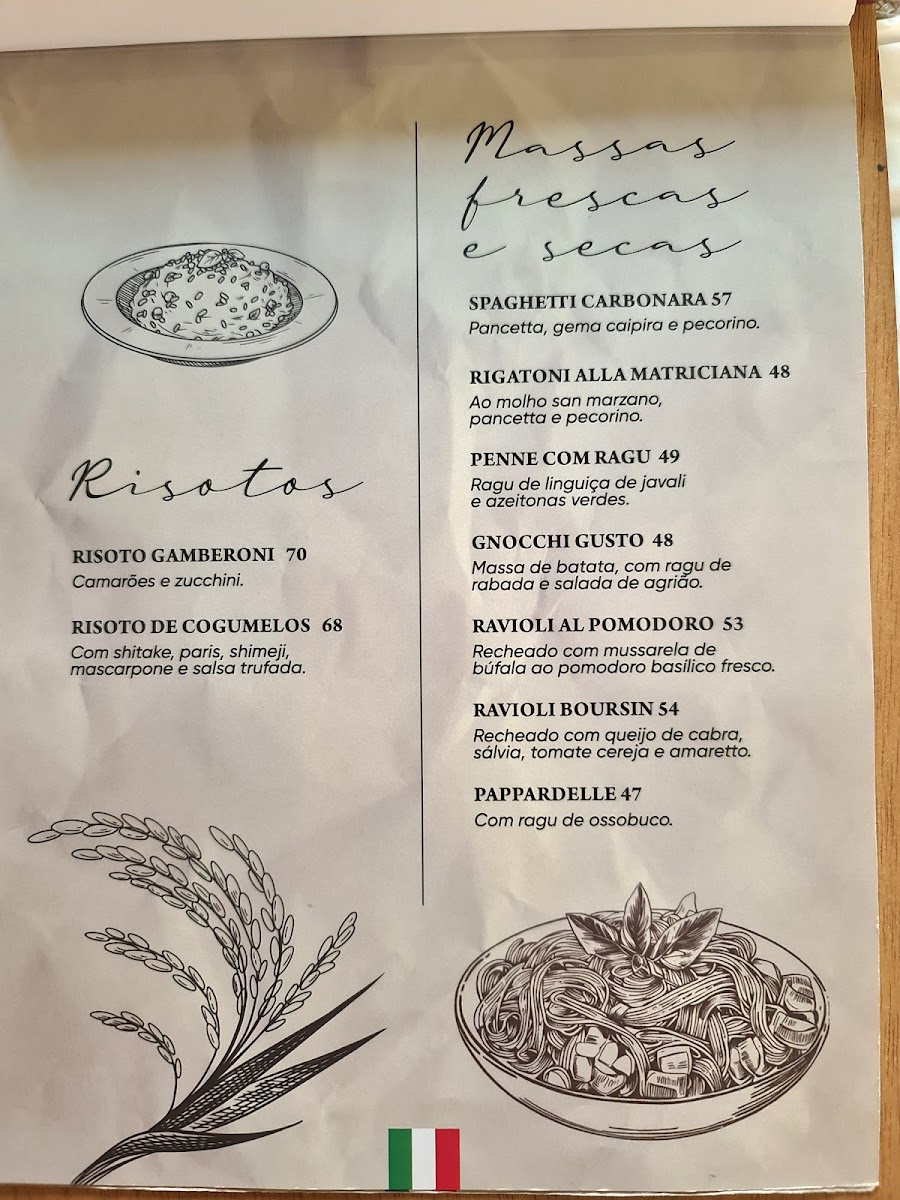 Risotos
RISOTO GAMBERONI 70
Camarões e zucchini.
RISOTO DE COGUMELOS 68
Com shitake, paris, shimeji,
mascarpone e salsa trufada.
Massas
frescas
e secas
SPAGHETTI CARBONARA 57
Pancetta, gema caipira e pecorino.
RIGATONI ALLA MATRICIANA 48
Ao molho san marzano,
pancetta e pecorino.
PENNE COM RAGU 49
Ragu de linguiça de javali
e azeitonas verdes.
GNOCCHI GUSTO 48
Massa de batata, com ragu de
rabada e salada de agrião.
RAVIOLI AL POMODORO 53
Recheado com mussarela de
búfala ao pomodoro basílico fresco.
RAVIOLI BOURSIN 54
Recheado com queijo de cabra,
sálvia, tomate cereja e amaretto.
PAPPARDELLE 47
Com ragu de ossobuco.